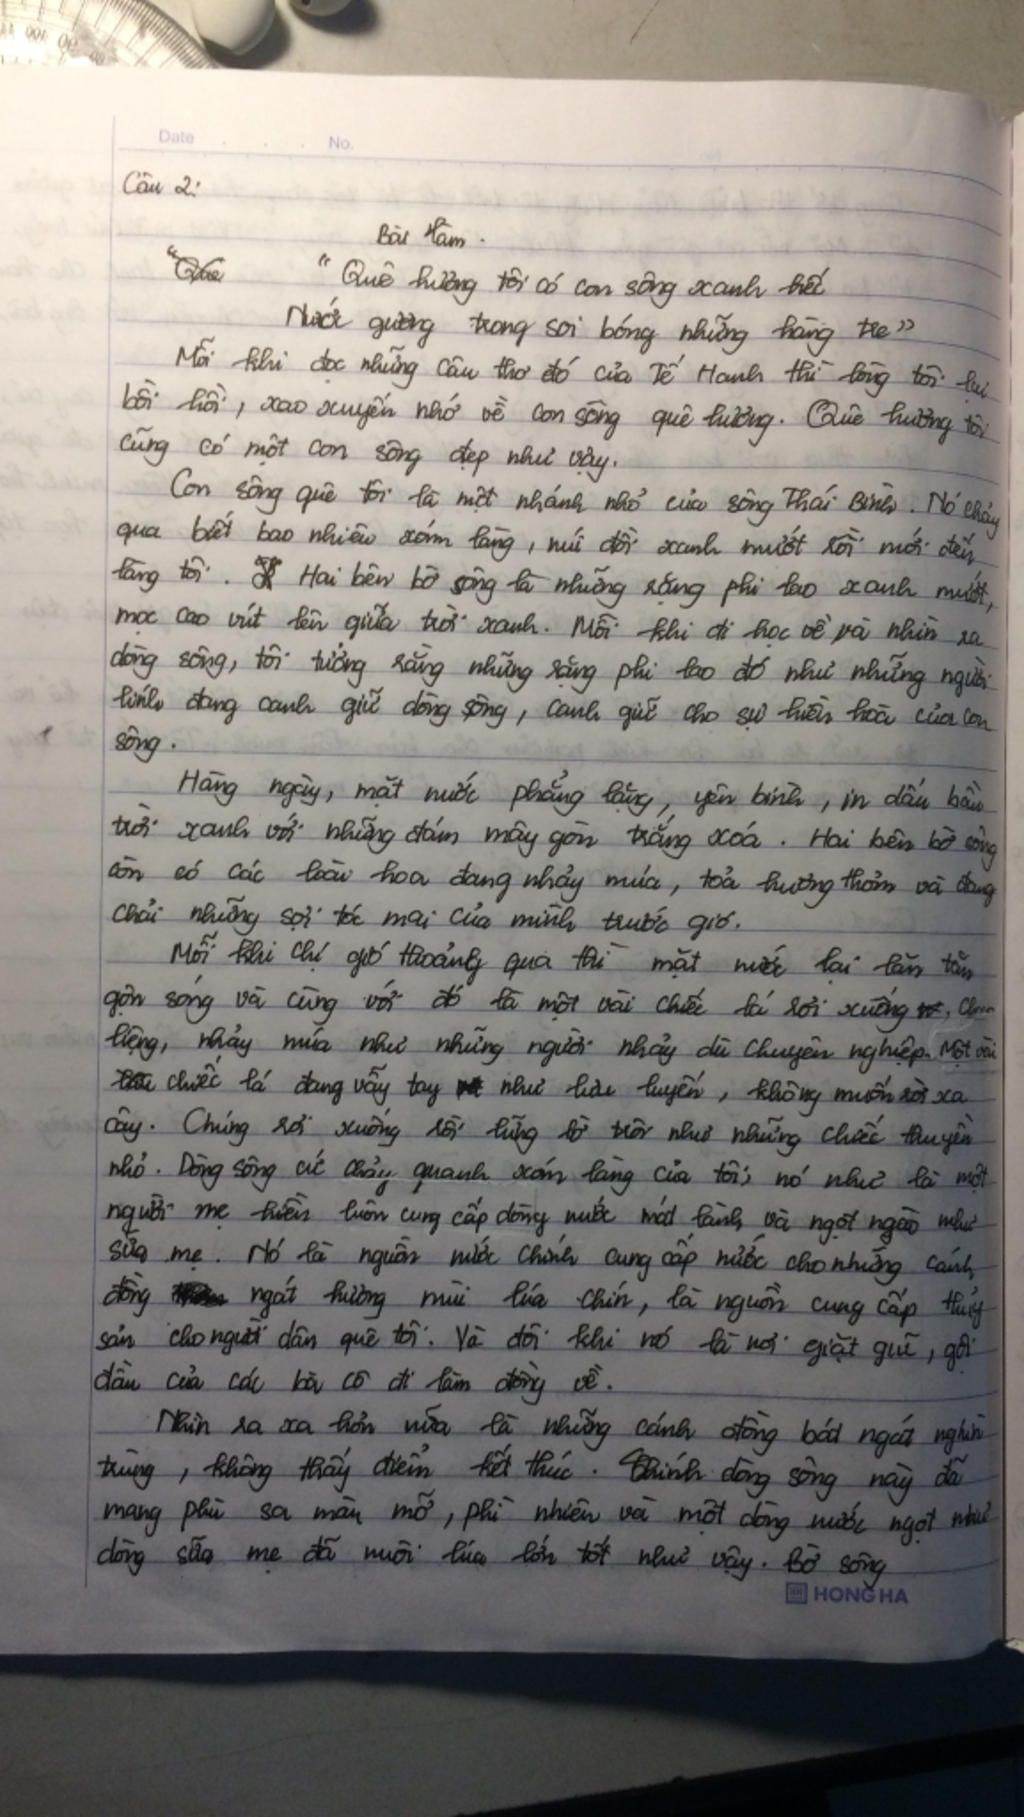 Date No.
Câu 2:
Bài làm.
"Quê "Quê hương tôi có con sông xanh biếc
Nước gương trong soi bóng những hàng tre"
Mỗi khi đọc những câu thơ đó của Tế Hanh thì lòng tôi lại
bồi hồi, xao xuyến nhớ về con sông quê hương. Quê hương tôi
cũng có một con sông đẹp như vậy.
Con sông quê tôi là một nhánh nhỏ của sông Thái Bình. Nó chảy
qua biết bao nhiêu xóm làng, núi đồi xanh mướt rồi mới đến
làng tôi. Hai bên bờ sông là những rặng phi lao xanh mướt,
mọc cao vút lên giữa trời xanh. Mỗi khi đi học về và nhìn ra
dòng sông, tôi tưởng rằng những rặng phi lao đó như những người
lính đang canh giữ dòng sông, canh giữ cho sự hiền hoà của con
sông.
Hàng ngày, mặt nước phẳng lặng, yên bình, in dấu bầu
trời xanh với những đám mây gòn trắng xoá. Hai bên bờ sông
còn có các loài hoa đang nhảy múa, toả hương thơm và đang
chải những sợi tóc mai của mình trước gió.
Mỗi khi chị gió thoảng qua thì mặt nước lại lăn tăn
gợn sóng và cùng với đó là một vài chiếc lá rơi xuống, chao
liệng, nhảy múa như những người nhảy dù chuyên nghiệp. Một vài
chiếc lá đang vẫy tay như lưu luyến, không muốn rời xa
cây. Chúng rơi xuống rồi lững lờ trôi như những chiếc thuyền
nhỏ. Dòng sông cứ chảy quanh xóm làng của tôi; nó như là một
người mẹ hiền luôn cung cấp dòng nước mát lành và ngọt ngào như
sữa mẹ. Nó là nguồn nước chính cung cấp nước cho những cánh
đồng ngát hương mùi lúa chín, là nguồn cung cấp thuỷ
sản cho người dân quê tôi. Và đôi khi nó là nơi giặt giũ, gội
đầu của các bà cô đi làm đồng về.
Nhìn ra xa hơn nữa là những cánh đồng bát ngát nghìn
trùng, không thấy điểm kết thúc. Chính dòng sông này đã
mang phù sa màu mỡ, phì nhiêu và một dòng nước ngọt như
dòng sữa mẹ đã nuôi lúa lớn tốt như vậy. Bờ sông
HONG HA